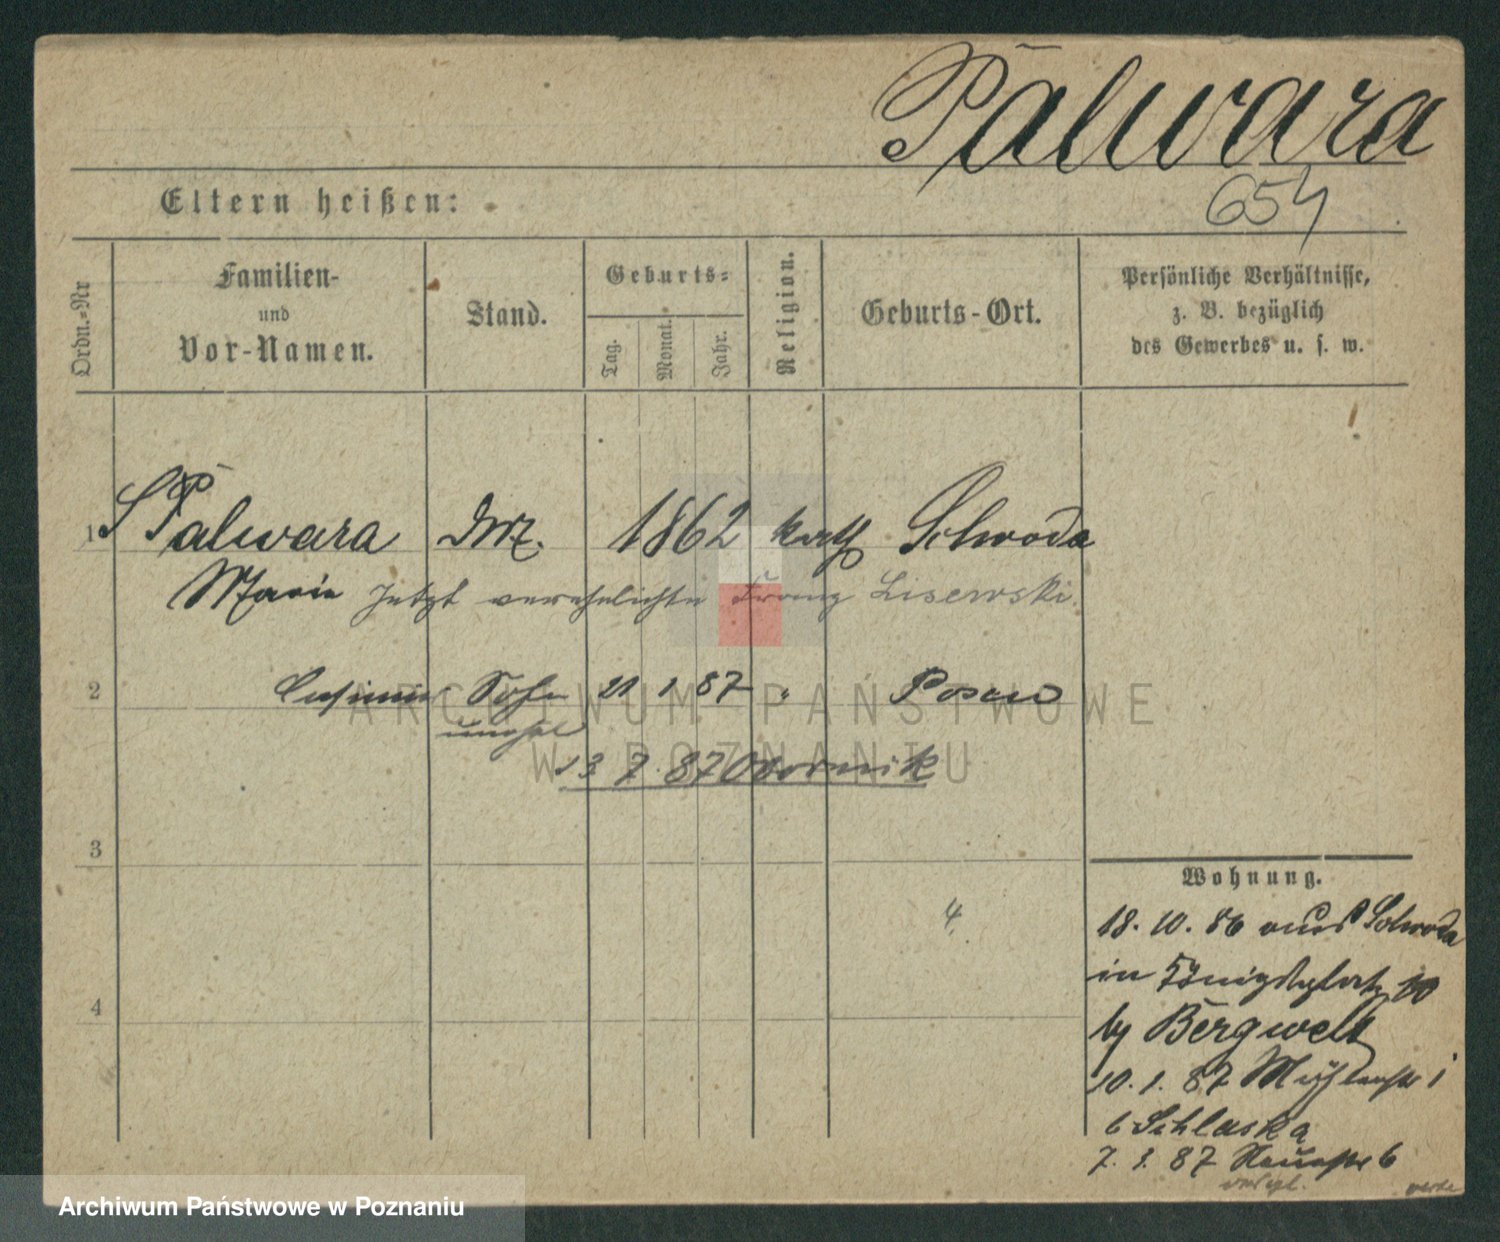 Palwara
654
Eltern heißen:
Ordn.-Nr
Familien-
und
Vor-Namen.
Stand.
Geburts-
Tag.
Monat.
Jahr.
Religion.
Geburts-Ort.
Persönliche Verhältnisse,
z. B. bezüglich
des Gewerbes u. s. w.
1 Palwara 1862 kath Schroda
Marie jetzt verehelichte Franz Lisewski.
2 Casimir Sohn 21 1 87 " Posen
unehel
13 7. 87 Obornik
3
4
4
Wohnung.
18. 10. 86 aus Schroda
in Königsplatz 10
by Bergwelt
10. 1. 87 Mühlenstr
6 Schlaska
7. 1. 87 Neuestr 6
ARCHIWUM PAŃSTWOWE
W POZNANIU
Archiwum Państwowe w Poznaniu